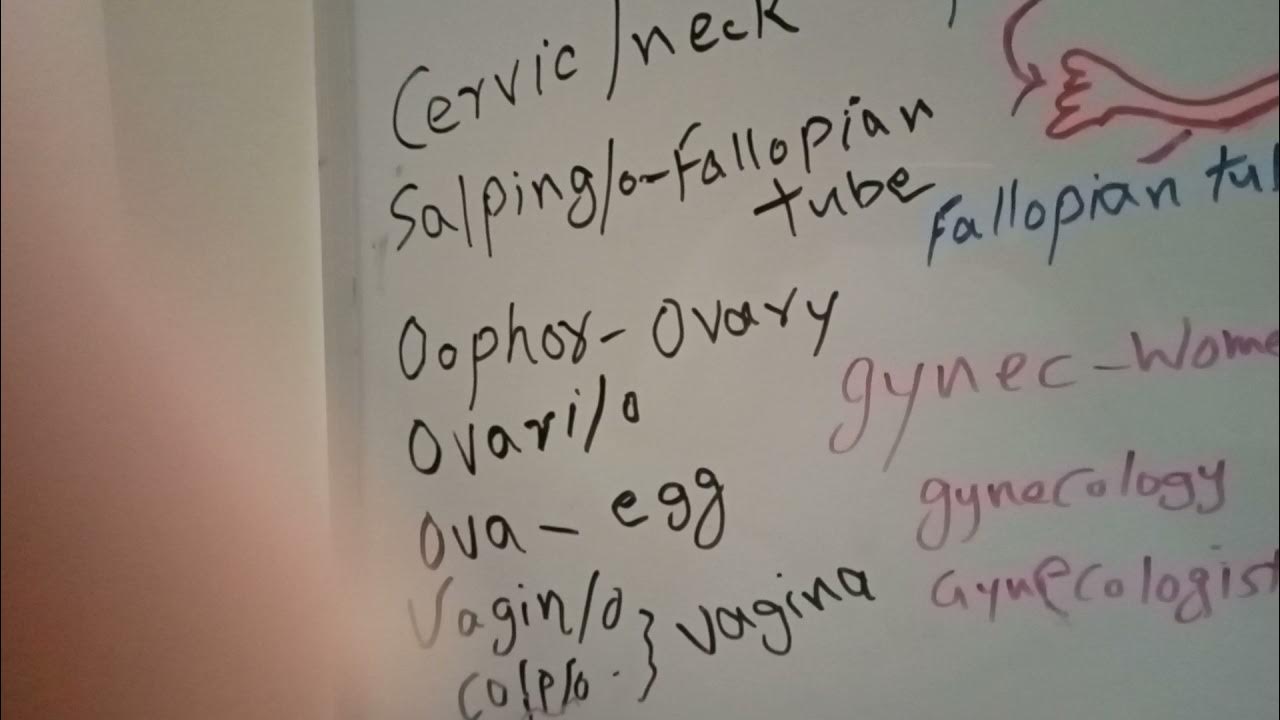 Cervic/neck
Salping/o-Fallopian
tube
Fallopian tu
Oophor-Ovary
gynec-Wome
Ovari/o
gynecology
Ova-egg
Gynecologist
Vagin/o } vagina
Colp/o.